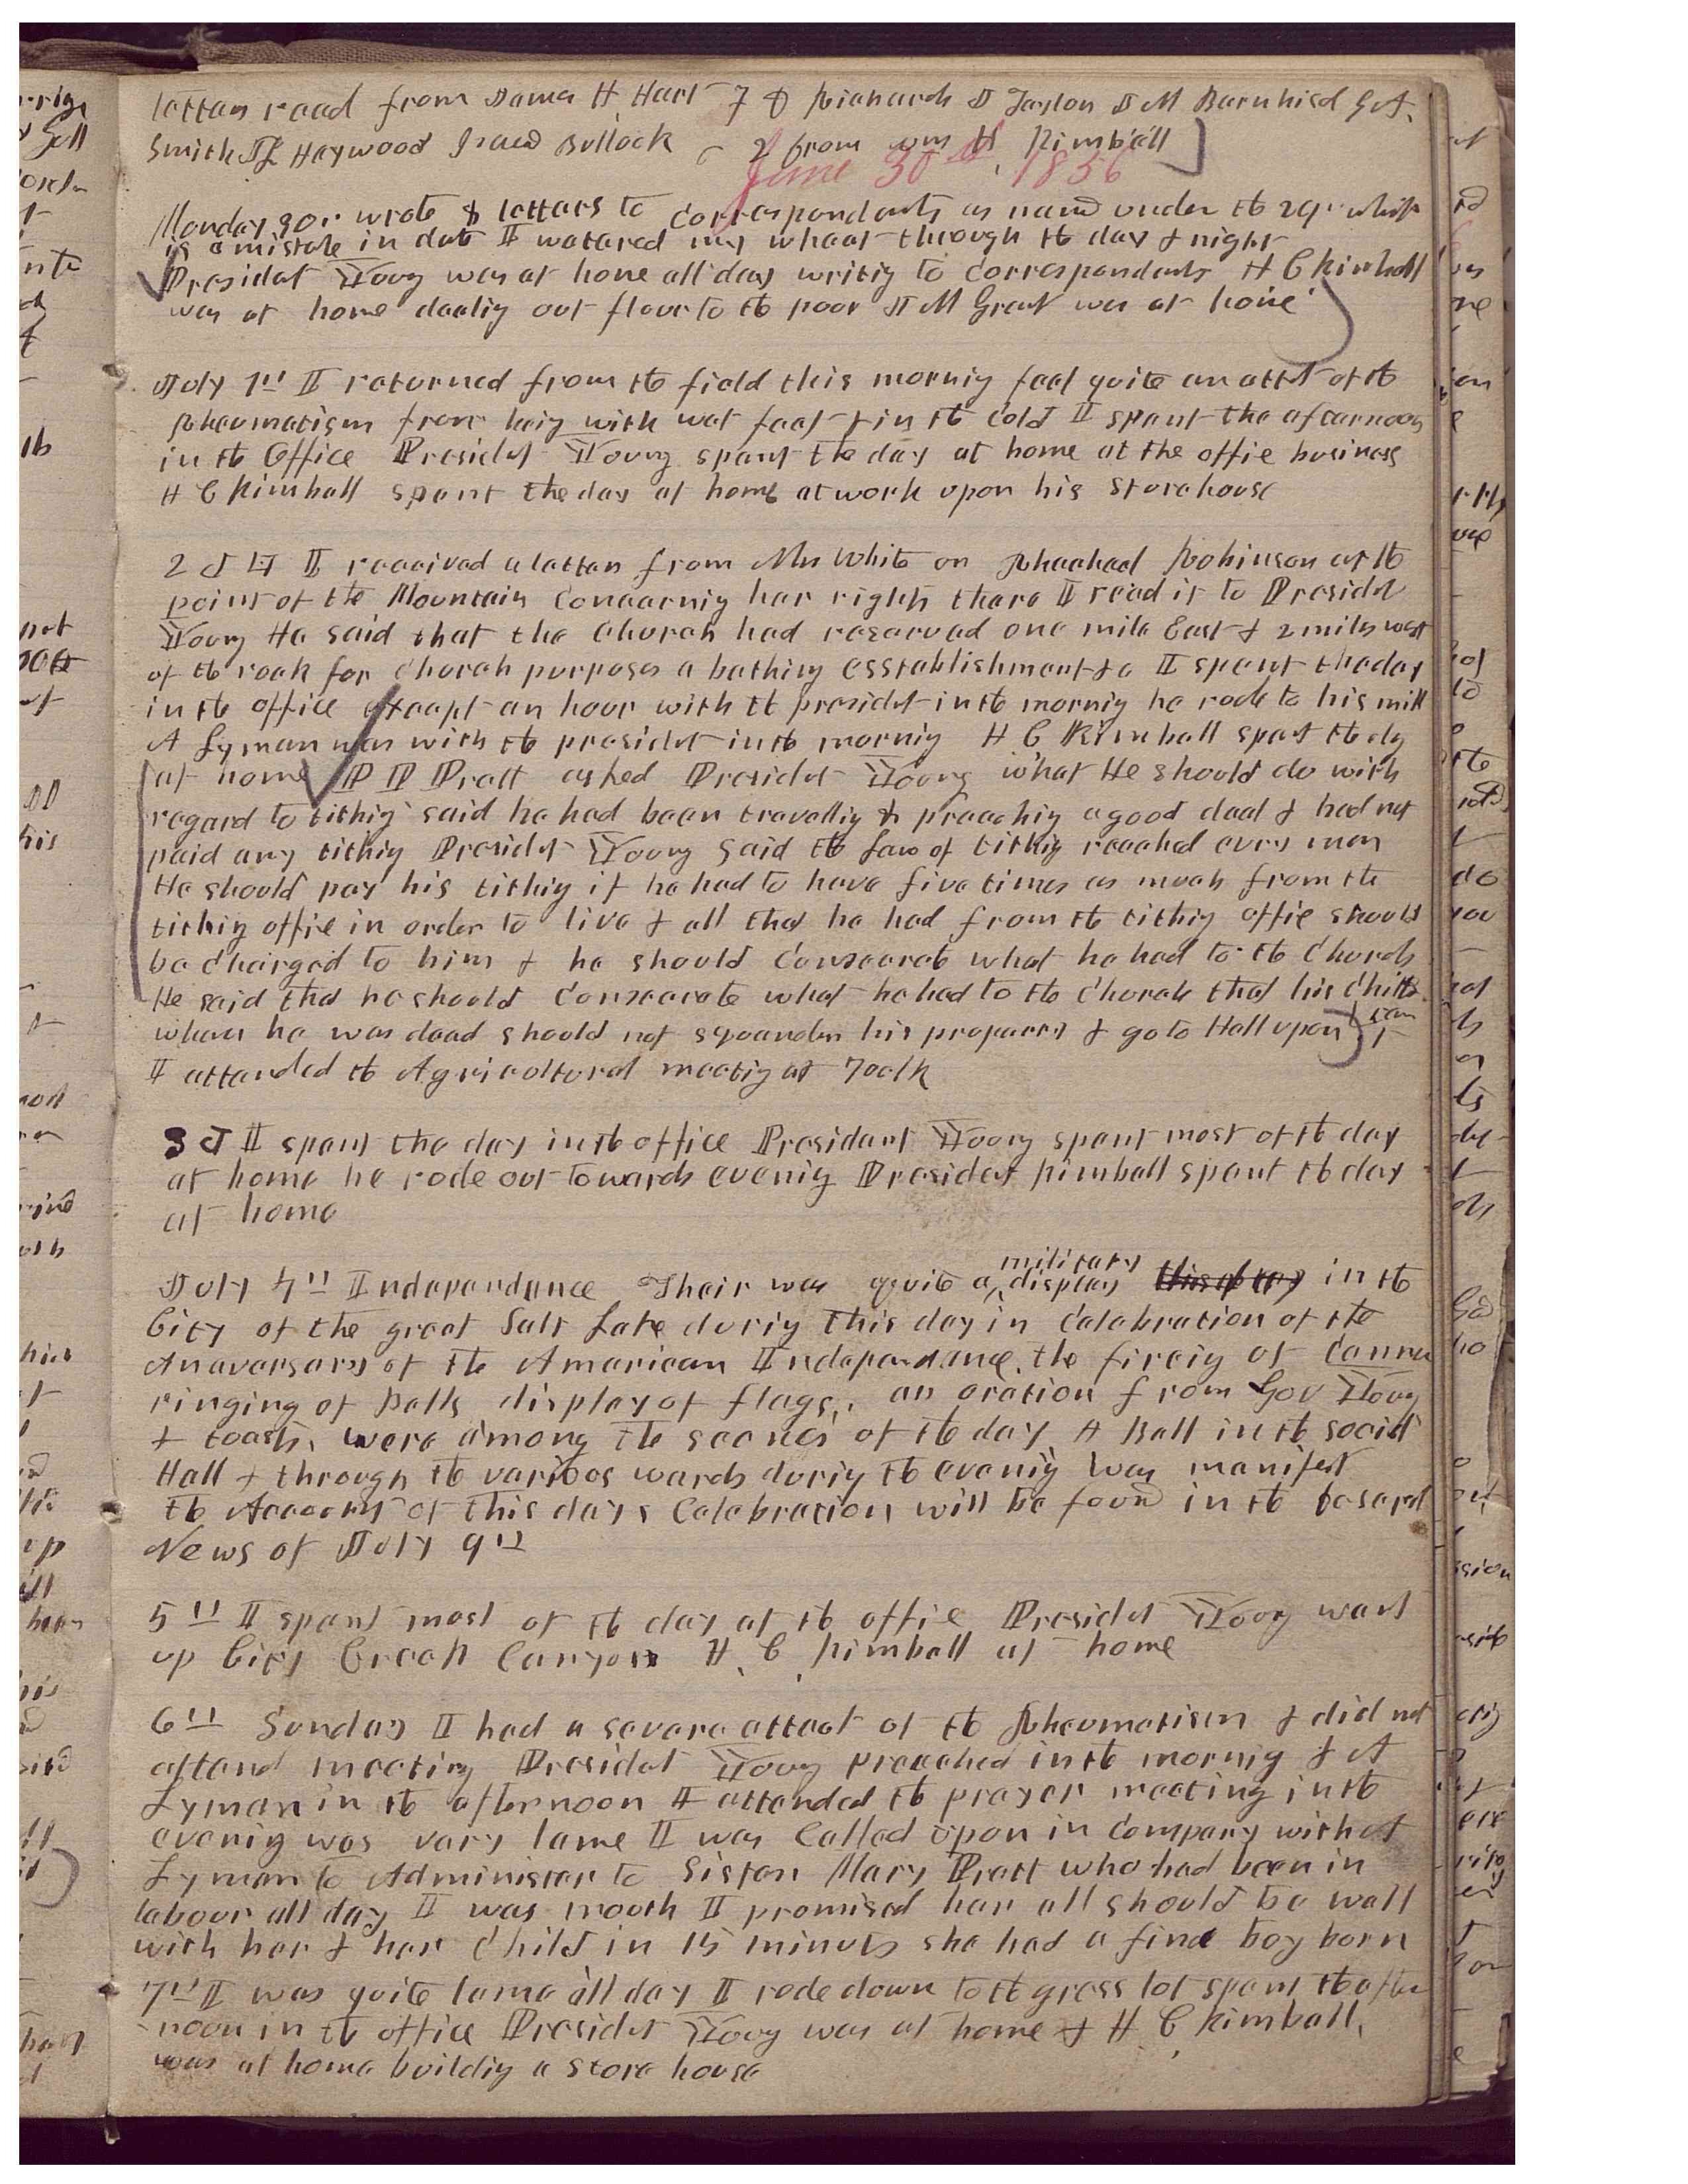 letters read from James H Hart F D Richards J Taylor J M Barnhisel G A.
Smith J L Haywood Isaac Bullock 2 from Wm H Kimball
June 30th, 1856
Monday 30th wrote 8 letters to correspondents as namd under the 29th which
is a mistake in date I watered my wheat through the day & night
President Young was at home all day writig to correspondents H C Kimball
was at home dealig out flour to the poor J M Grant was at home
July 1st I returned from the field this mornig feel quite an attk of the
Rheumatism from beig with wet feet & in the cold I spent the afternoon
in the Office Presidet Young spent the day at home at the offie business
H C Kimball spent the day at home at work upon his Storehouse
2d I received a letter from Mrs White or Rheachad Robinson at the
point of the Mountain concernig her rights there I read it to Presidet
Young He said that the Church had reserved one mile East & 2 miles west
of the rock for Church purposes a bathing esstablishment &c I spent the day
in the office except an hour with the presidet in the mornig he rode to his mill
A Lyman was with the presidet in the mornig H C Kimball spent the dy
at home P P Pratt asked Presidet Young what He should do with
regard to tithig said he had been travellig & preachig a good deal & had not
paid any tithig Presidet Young said the Law of tithig reached evry man
He should pay his tithig if he had to have five times as much from the
tithig offie in order to live & all that he had from the tithig offie should
be charged to him & he should consecrate what he had to the Church
He said that he should consecrate what he had to the Church that his Childrn
when he was dead should not squander his property & go to Hell upon it
I attended the Agricultural meetig at 7oclk
3d I spent the day in the office President Young spent most of the day
at home he rode out towards evenig President Kimball spent the day
at home
July 4th Independance Their was quite a military display this day in the
City of the great Salt Lake durig this day in Celebration of the
Anaversary of the American Independance. the fireig of Cannon
ringing of Bells display of flags, an oration from Gov Young
& toasts, were among the scenes of the day A Ball in the social
Hall & through the various wards durig the evenig was manifest
the Account of this days Celebration will be found in the Deseret
News of July 9th
5th I spent most of the day at the offie Presidet Young went
up City Creek Canyon H. C. Kimball at home
6th Sunday I had a severe attact of the Rheumatism & did not
attend meeting Presidet Young preached in the mornig & A
Lyman in the afternoon I attended the prayer meeting in the
evenig was very lame I was Called upon in Company with A
Lyman to Administer to Sister Mary Pratt who had been in
labour all day I was mouth I promised her all should be well
with her & her Child in 15 minuts she had a fine boy born
7th I was quite lame all day I rode down to the grass lot spent the after
noon in the office Presidet Young was at home & H C Kimball,
was at home buildig a store house